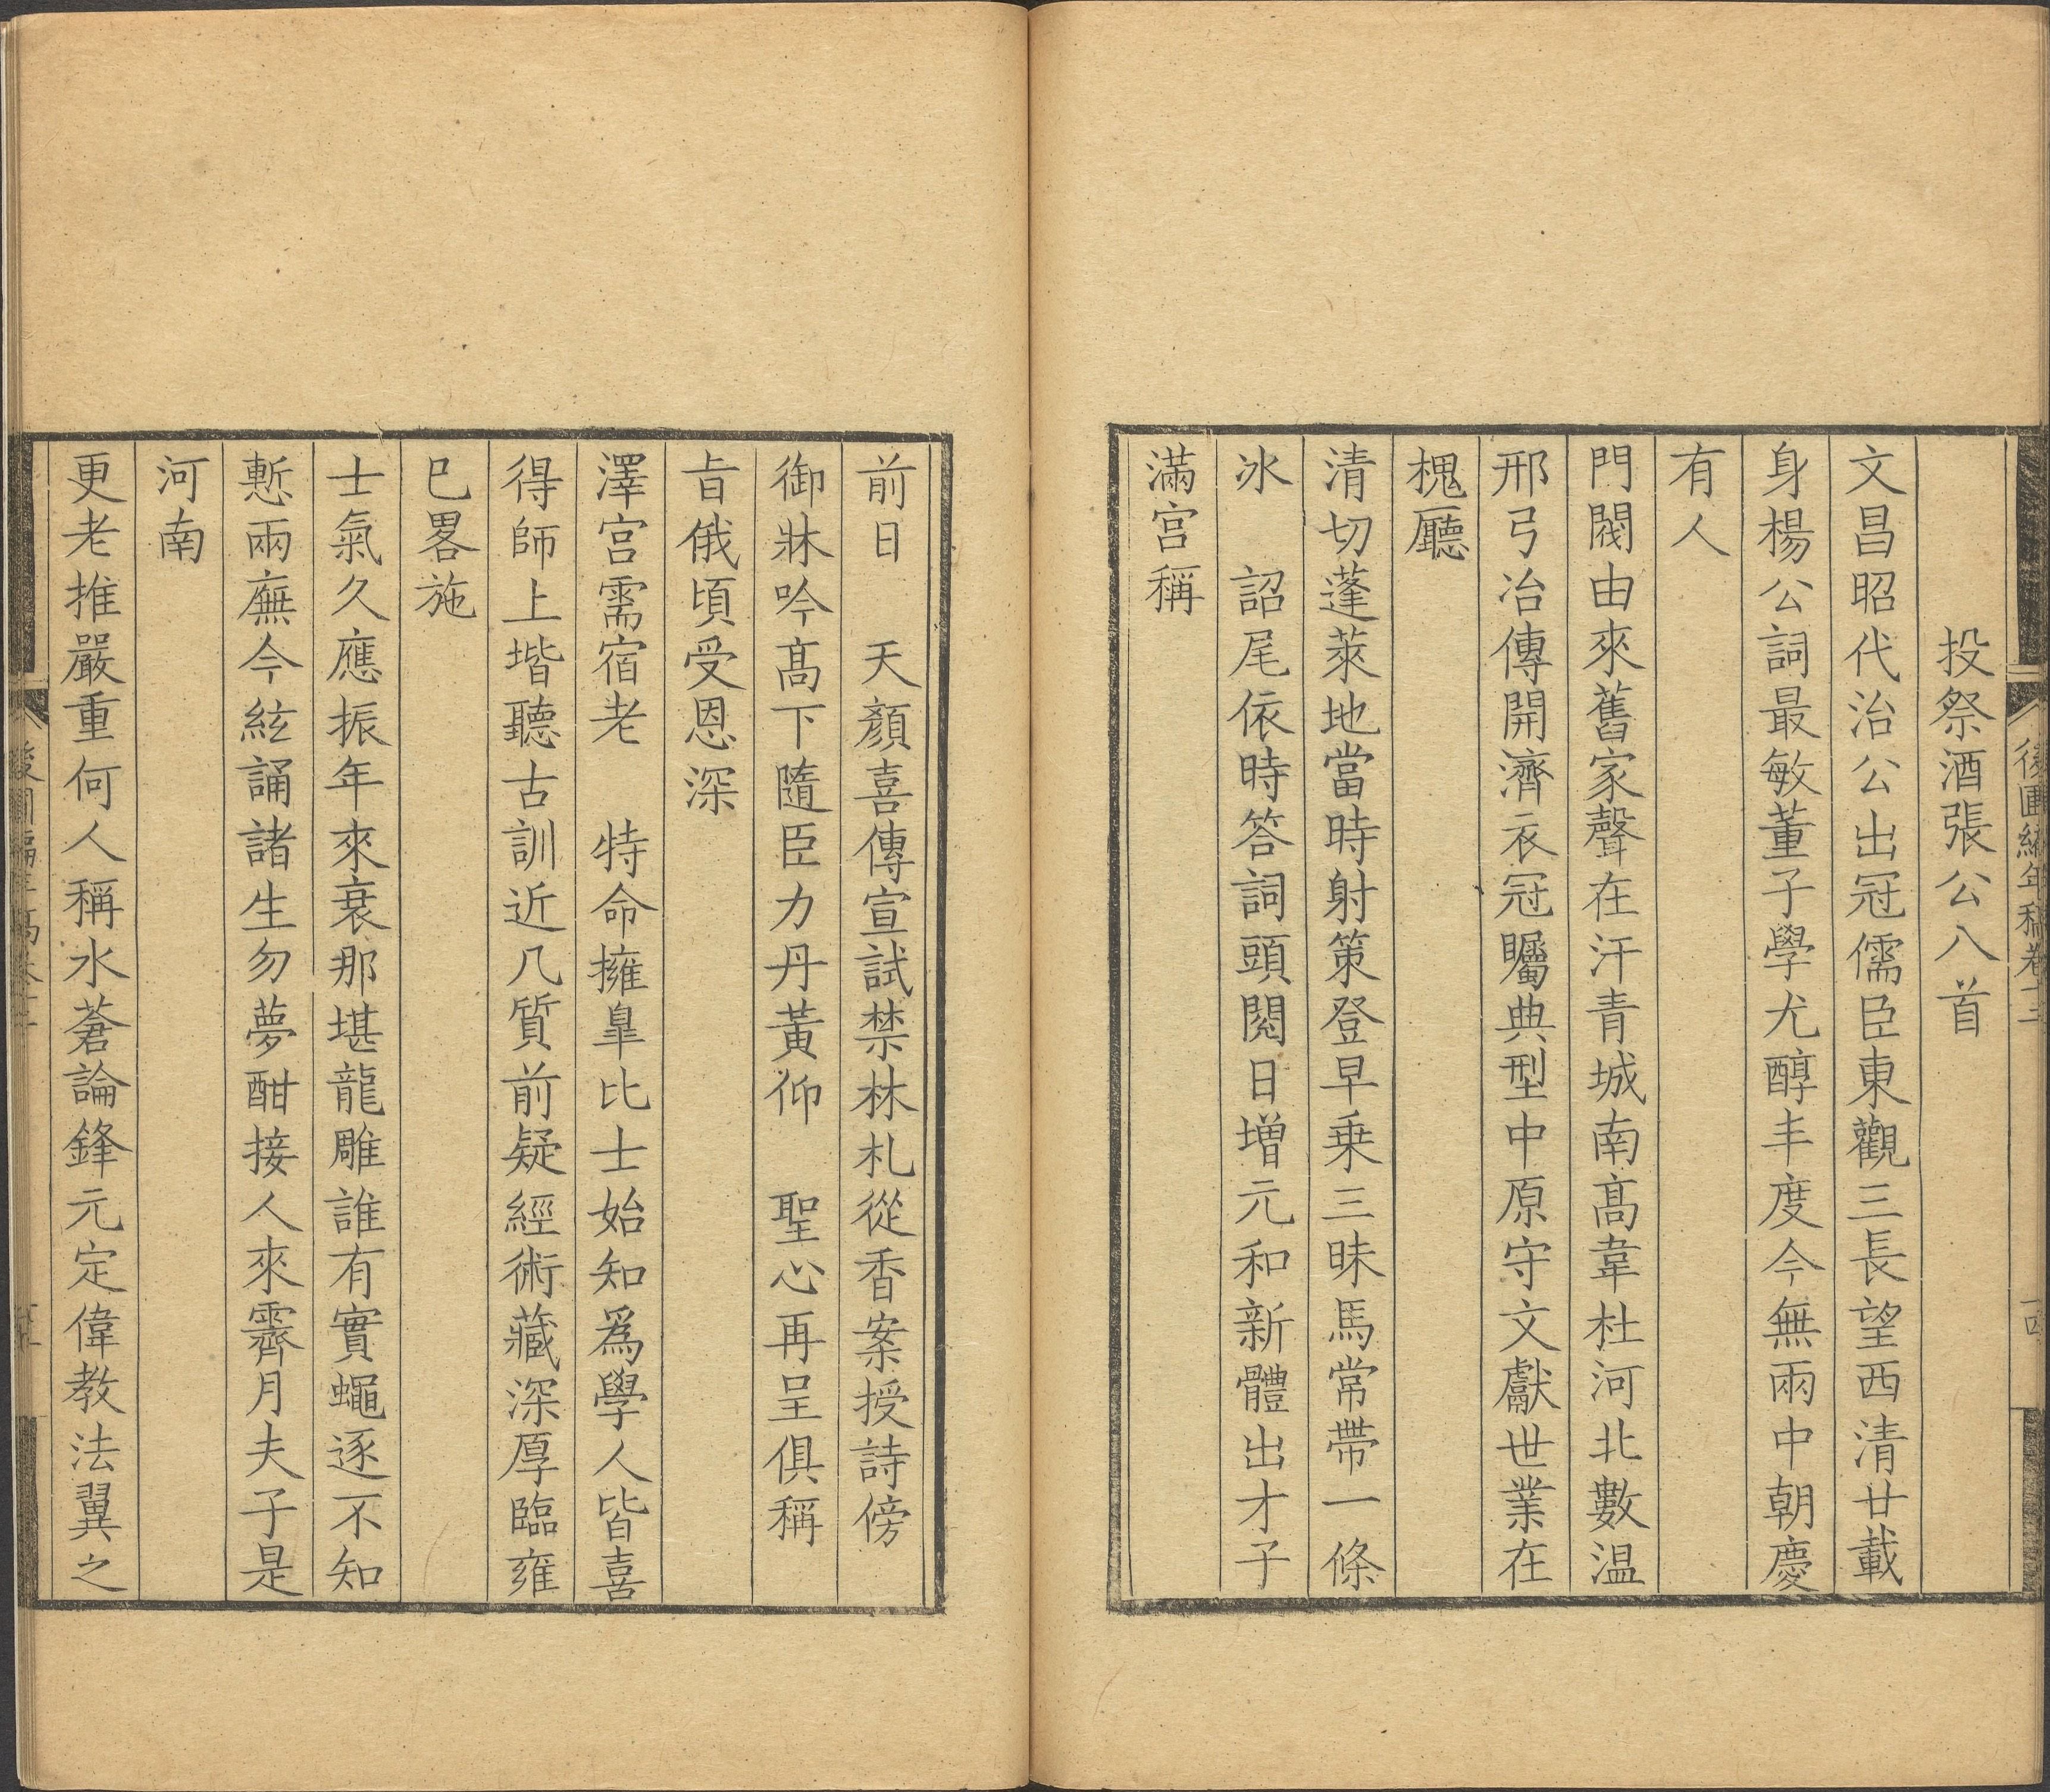 後圃編年稿卷十三
十四
投祭酒張公八首
文昌昭代治公出冠儒臣東觀三長望西清廿載
身楊公詞最敏董子學尤醇丰度今無兩中朝慶
有人
門閥由來舊家聲在汗青城南髙韋杜河北數温
邢弓冶傳開濟衣冠矚典型中原守文獻世業在
槐廳
清切蓬萊地當時射策登早乗三昧馬常帶一條
冰　詔尾依時答詞頭閲日增元和新體出才子
滿宫稱
前日　天顏喜傳宣試禁林札從香案授詩傍
御牀吟髙下隨臣力丹黃仰　聖心再呈俱稱
㫖俄頃受恩深
澤宫需宿老　特命擁臯比士始知爲學人皆喜
得師上堦聽古訓近几質前疑經術藏深厚臨雍
巳畧施
士氣久應振年來衰那堪龍雕誰有實蠅逐不知
慙兩廡今絃誦諸生勿夢酣接人來霽月夫子是
河南
更老推嚴重何人稱水蒼論鋒元定偉教法翼之